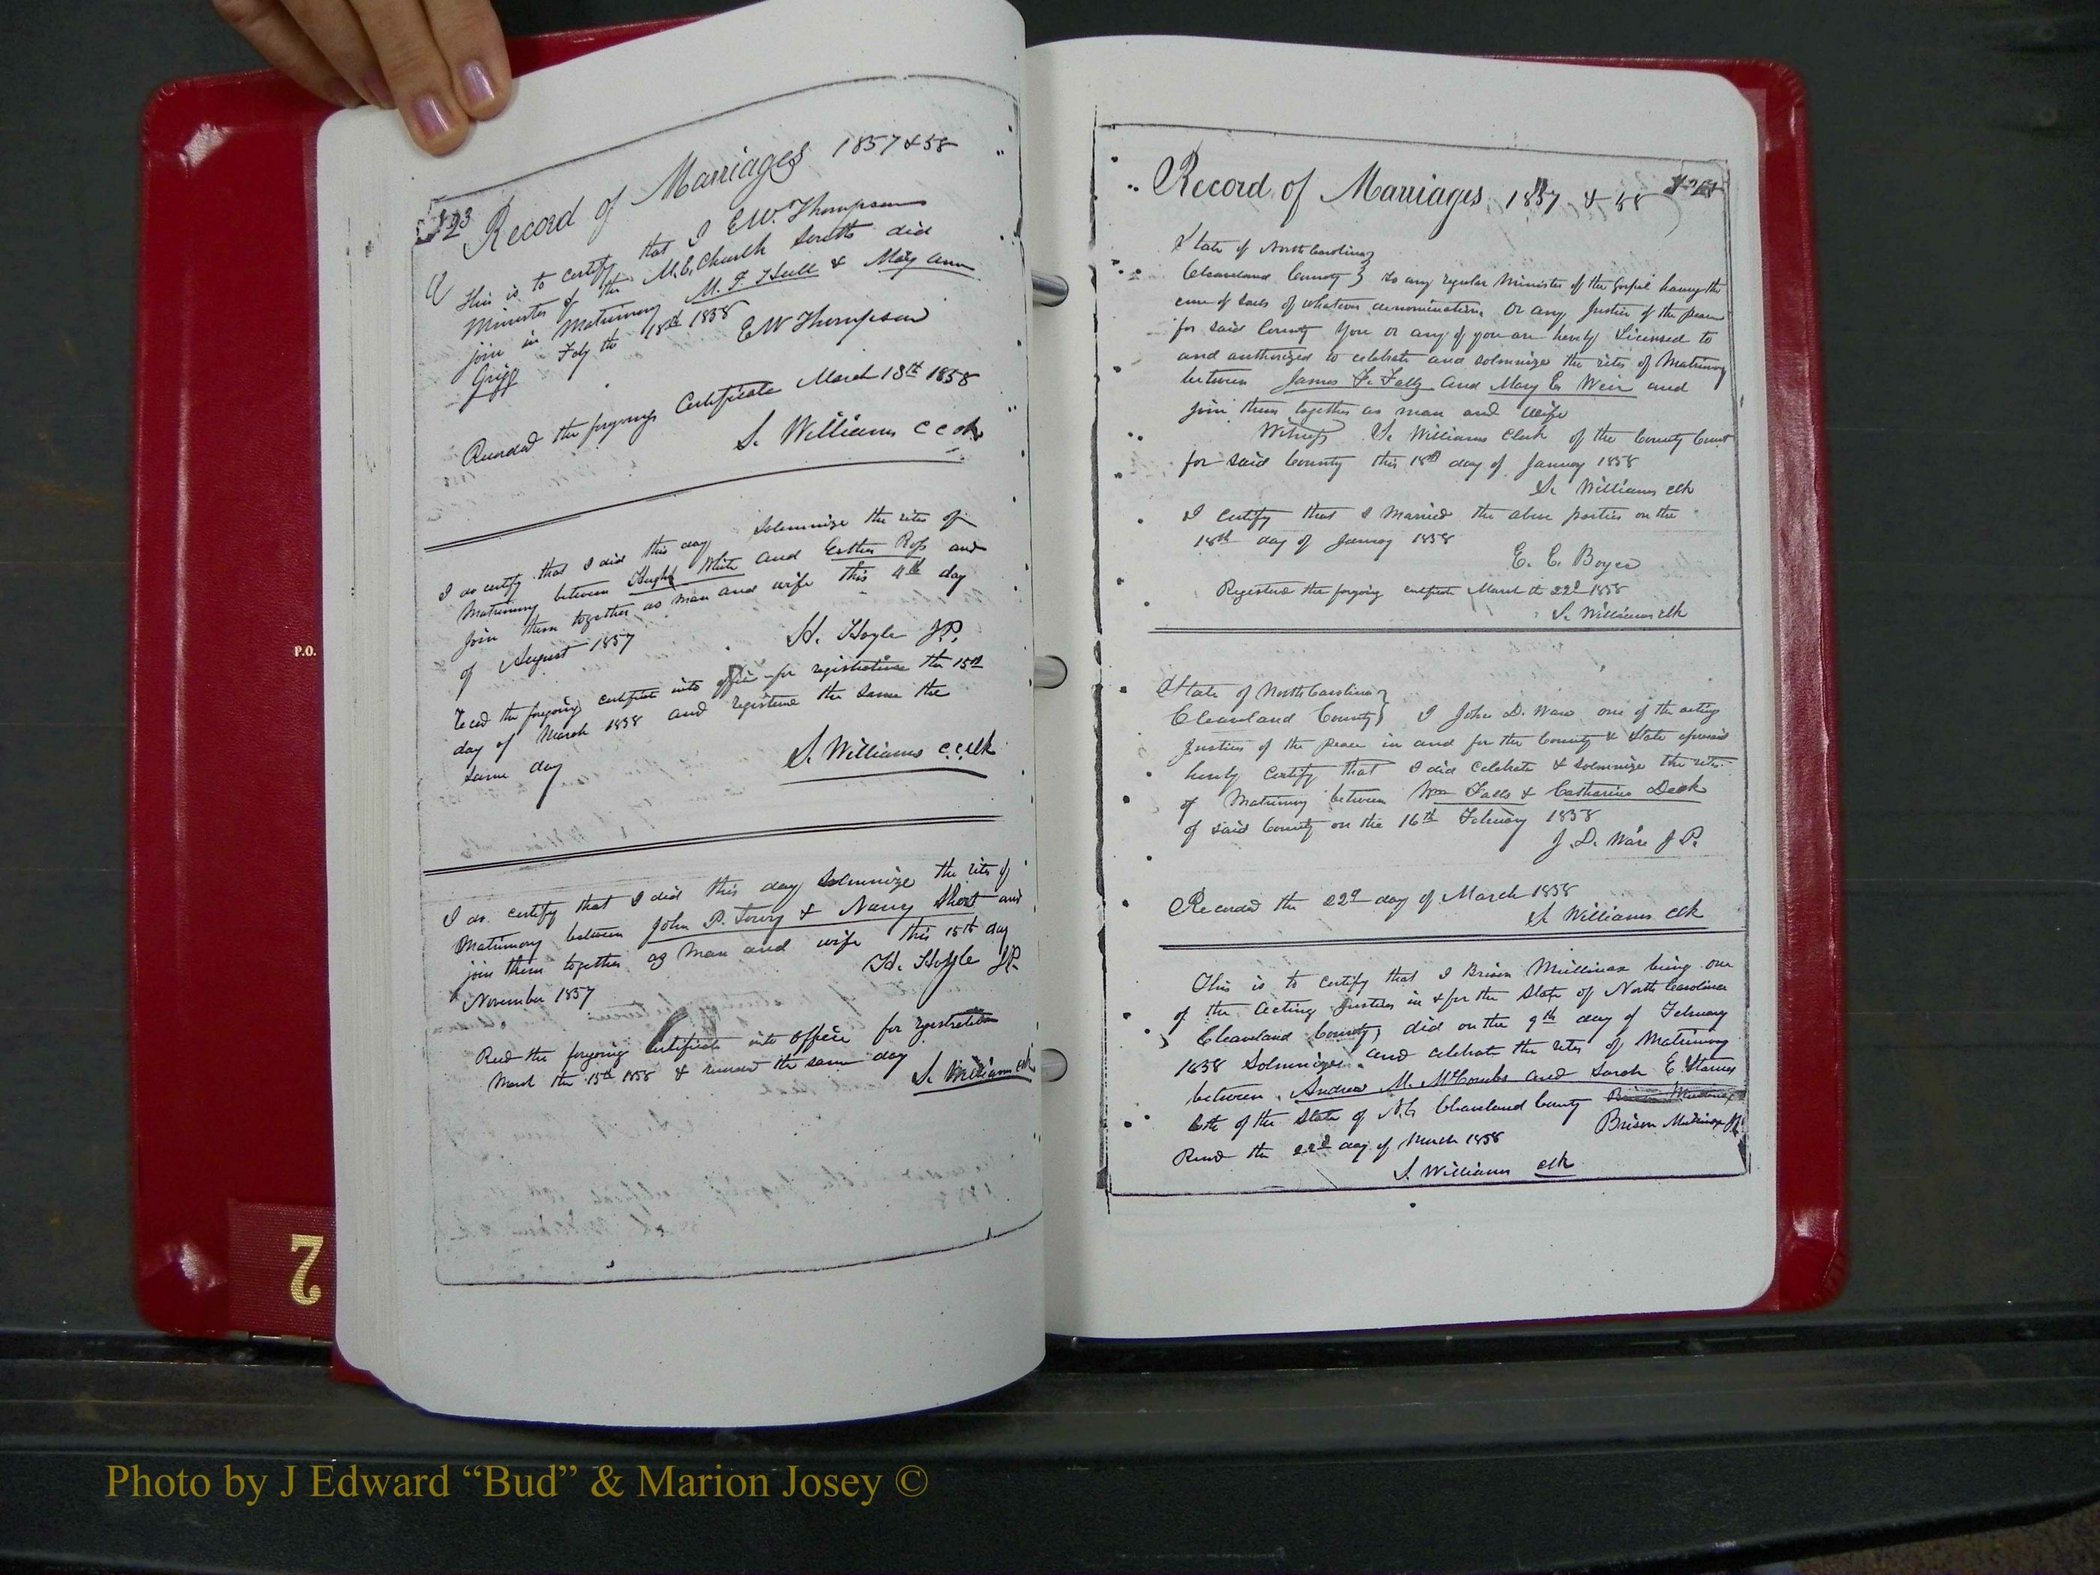 123 Record of Marriages 1857 & 58
This is to certify that I E.W. Thompson
Minister of the M.E. Church South did
join in Matrimony M. F. Hull & Mary Ann
Griff Feby the 18th 1858
E W Thompson
Recorded the forgoing Certificate March 13th 1858
S. Williams c c clk
I do certify that I did this day Solemnize the rites of
Matrimony between Hugh White and Esther Ross and
join them together as man and wife this 4th day
of August 1857
H. Hoyle J.P.
Recd the foregoing certificate into office for registration the 15th
day of March 1858 and registered the same the
same day
S. Williams c.c. clk
I do certify that I did this day Solemnize the rites of
Matrimony between John P. Towry & Nancy Short and
join them together as man and wife this 15th day
November 1857
H. Hoyle JP.
Recd the forgoing Certificate into office for registration
March the 15th 1858 & the same day
S. Williams clk
Record of Marriages 1857 & 58
State of North Carolina
Cleaveland County } to any regular Minister of the Gospel having the
cure of souls of whatever denomination, or any Justice of the peace
for said County You or any of you are hereby Licensed to
and authorized to celebrate and solemnize the rites of Matrimony
between James F. Falls and Mary E. Weir and
join them together as man and wife
Witness S. Williams Clerk of the County Court
for said County this 18th day of January 1858
S. Williams clk
I certify that I Married the above parties on the
18th day of January 1858
E. C. Boyce
Registered the forgoing certificate March th 22d 1858
S. Williams clk
State of North Carolina
Cleaveland County } I John D. Ware one of the acting
Justices of the peace in and for the County & State aforesaid
hereby certify that I did celebrate & solemnize the rites
of Matrimony between Wm Falls & Catharine Deck
of said County on the 16th February 1858
J. D. Ware J P.
Recorded the 22d day of March 1858
S. Williams clk
This is to certify that I Brison Mullinax being one
of the acting Justices in & for the State of North Carolina
Cleaveland County, did on the 9th day of February
1858 Solemnize and celebrate the rites of Matrimony
between Andrew M. McCombs and Sarah E. Starnes
both of the State of N.C. Cleaveland County
Brison Mullinax JP.
Recd the 22d day of March 1858
S. Williams clk
P.O.
2
Photo by J Edward “Bud” & Marion Josey ©